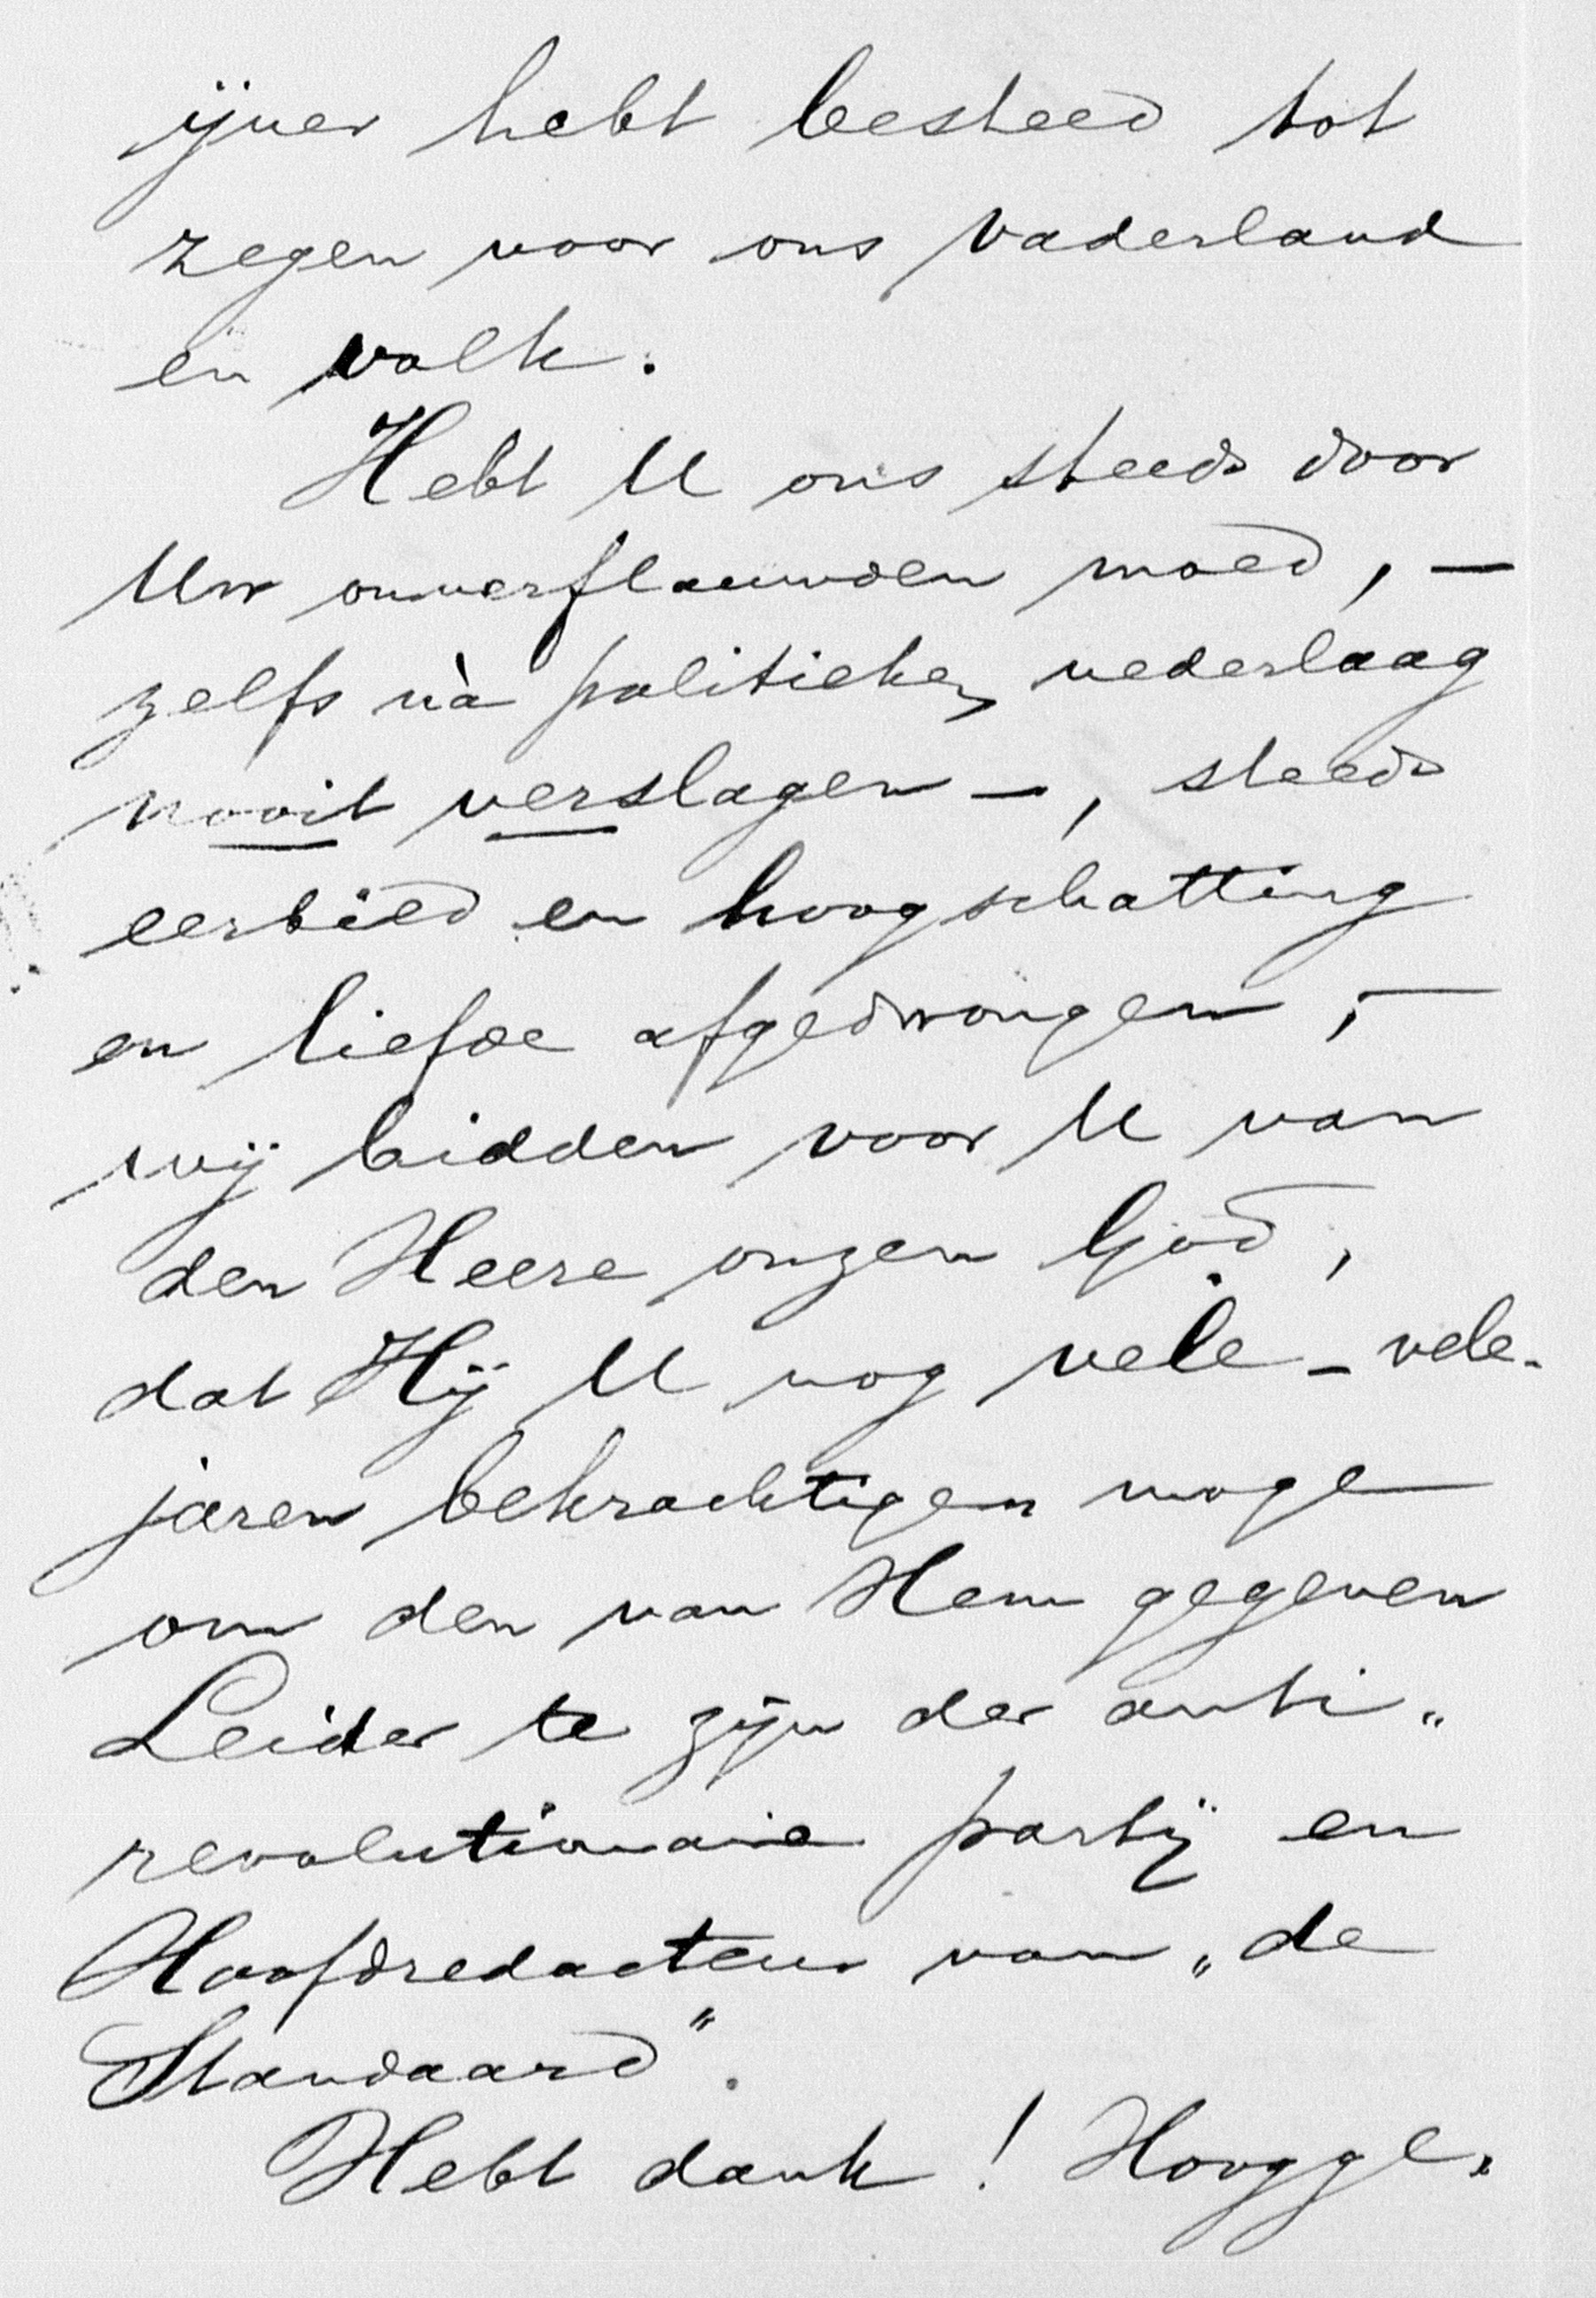 ijver hebt besteed tot
zegen voor ons vaderland
en volk.
Hebt U ons steeds door
Uw onverflauwden moed, —
zelfs nà politieke, nederlaag
nooit verslagen —, steeds
eerbied en hoogschatting
en liefde afgedwongen, —
wij bidden voor U van
den Heere onzen God,
dat Hij U nog vele - vele -
jaren bekrachtigen moge
om den van Hem gegeven
Leider te zijn der anti„
revolutionaire partij en
Hoofdredacteur van „de
Standaard".
Hebt dank! Hoogge„